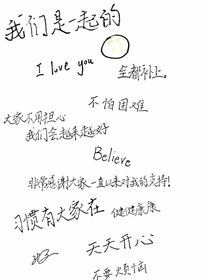 我们是一起的
I love you
全都补上。
不怕困难
大家不用担心
我们会越来越好
Believe
非常感谢大家一直以来对我的支持!
习惯有大家在
健健康康
天天开心
不要烦恼